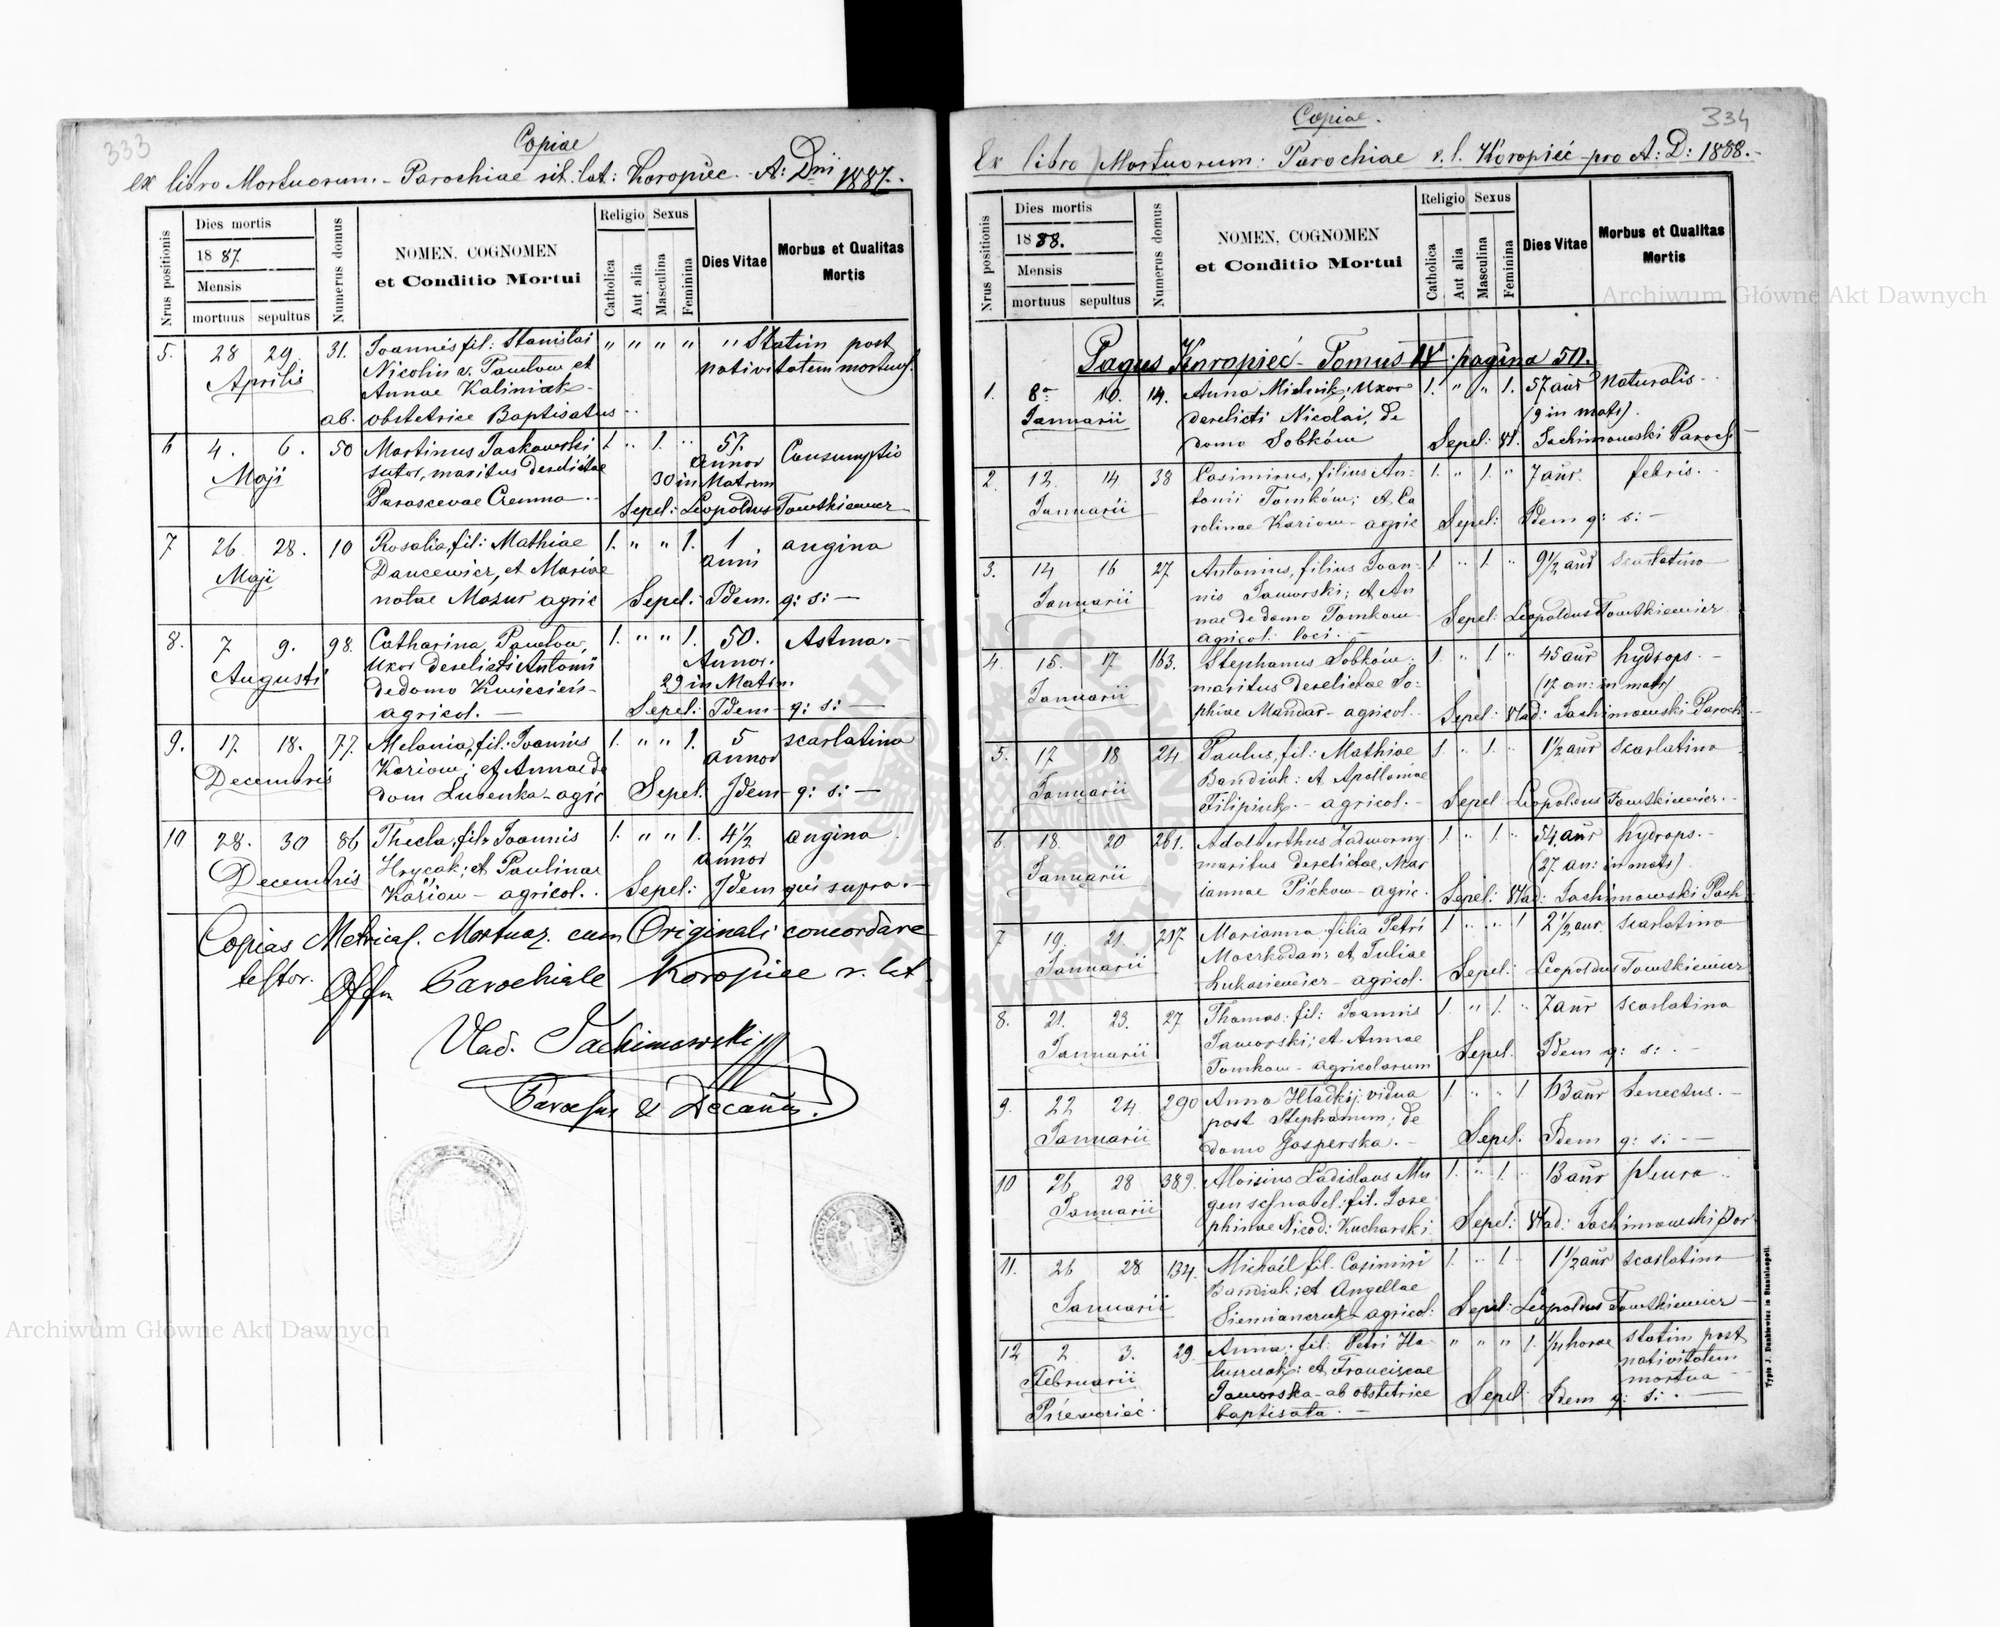 333
Copiae
ex libro Mortuorum. Parochiae rit. lat: Koropiec. A: Dni 1887.
Nrus positionis
Dies mortis
18 87.
Mensis
mortuus sepultus
Numerus domus
NOMEN, COGNOMEN
et Conditio Mortui
Religio Sexus
Catholica
Aut alia
Masculina
Feminina
Dies Vitae
Morbus et Qualitas
Mortis
5. 28 29. 31. Joannes fil: Stanislai " " " " " Statim post
Aprilis Nicolin v. Pawlow et nativitatem mortuus.
Annae Kaliniak
ab. obstetrice Baptisatus
6 4. 6. 50 Martinus Jackowski 1. " 1. " 57. Consumptio
Maji sutor, maritus derelictae annor
30 in Matrim
Parascevae Ciemna
Sepel: Leopoldus Tomtkiewicz
7 26 28. 10 Rosalia, fil: Mathiae 1. " " 1. 1 angina
Maji Dancewicz, et Mariae anni
natae Mazur agric Sepel: Idem. q: s: —
8. 7 9. 98. Catharina Pawlow, 1. " " 1. 50. Astma. -
Augusti uxor derelicti Antonii Annor.
de domo Kwiecień 29 in Matrim.
agricol. — Sepel: Idem q: s: —
9. 17 18. 77. Melania, fil: Joannis 1. " " 1. 5 scarlatina
Decembris Kariow; et Annae de annor
dom Lusenka - agric Sepel: Idem q: s: —
10 28. 30 86 Thecla, fil: Joannis 1. " " 1. 4½ angina
Decembris Hrycak; et Paulinae annor
Kariow - agricol. Sepel: Idem qui supra. -
Copias Metrical. Mortuor. cum Originali concordare
testor. Offm Parochiale Koropiec r. lat.
Vlad. Jachimowski
Parochus & Decanus.
334
Copiae.
Ex libro Mortuorum: Parochiae r. l. Koropieć pro A: D: 1888. -
Nrus positionis
Dies mortis
18 88.
Mensis
mortuus sepultus
Numerus domus
NOMEN, COGNOMEN
et Conditio Mortui
Religio Sexus
Catholica
Aut alia
Masculina
Feminina
Dies Vitae
Morbus et Qualitas
Mortis
Pagus Koropieć - Tomus IV. pagina 50.
1. 8 10. 14. Anna Mielnik, uxor 1. " " 1. 57 anr naturalis.
Januarii derelicti Nicolai, de (9 in matr).
domo Sobków Sepel: Vl. Jachimowski Paroch
2. 12. 14 38 Casimirus, filius An- 1. " 1. " 7 anr. febris.
Januarii tonii Tomków; et Ca
rolinae Kariow - agric Sepel: Idem q: s: -
3. 14 16 27 Antonius, filius Joan- 1 " 1. " 9½ anr scarlatina
Januarii nis Jaworski; et An
nae de domo Tomkow Sepel: Leopoldus Tomtkiewicz
agricol: loci. -
4. 15. 17 163. Stephanus Sobków; 1. " 1. " 45 anr hydrops. -
Januarii maritus derelictae So- (12 an: in matr)
phiae Mandar - agricol. Sepel: Vlad: Jachimowski Paroch. -
5. 17 18 24. Paulus, fil: Mathiae 1. " 1. " 1½ anr scarlatina
Januarii Bandiak: et Apolloniae
Filipiuk. - agricol. - Sepel Leopoldus Tomtkiewicz. -
6. 18. 20 261. Adalberthus Zadworny 1 " 1. " 54 anr hydrops. -
Januarii maritus derelictae, Mar (27 an: in matr)
iannae Pićkow - agric. Sepel: Vlad: Jachimowski Parh
7 19. 21. 217. Marianna filia Petri 1 " " 1 2½ anr. scarlatina
Januarii et Juliae
Łukasiewicz - agricol. Sepel: Leopoldus Tomtkiewicz
8. 21. 23. 27 Thomas: fil: Joannis 1. " 1. " 7 anr scarlatina
Januarii Jaworski; et Annae
Tomkow - agricolarum Sepel. Idem q: s: . -
9. 22 24. 290 Anna Hładkij: vidua 1 " " 1 63 anr Senectus. -
Januarii post Stephanum; de
domo Gasperska. - Sepel: Idem q: s: - —
10 26 28 389. Aloisius Ladislaus 1. " 1. " 13 anr pleura
Januarii fil. Jose
phinae Nicod: Kucharski. Sepel: Vlad: Jachimowski Par
11. 26 28. 134. Michaël fil. Casimiri 1. " 1. 1½ anr scarlatina
Januarii Bandiak; et Angellae
Siemianczuk - agricol: Sepel: Leopoldus Tomtkiewicz -
12 2 3. 29. Anna; fil: Petri Ha- " " " 1. ¼ horae statim post
Februarii et Franciscae nativitatem
Jaworska - ab obstetrice mortua
baptisata. - Sepel: Idem q: s: . -
Typis J. Dankiewicz in Stanislaopoli.
Archiwum Główne Akt Dawnych
Archiwum Główne Akt Dawnych